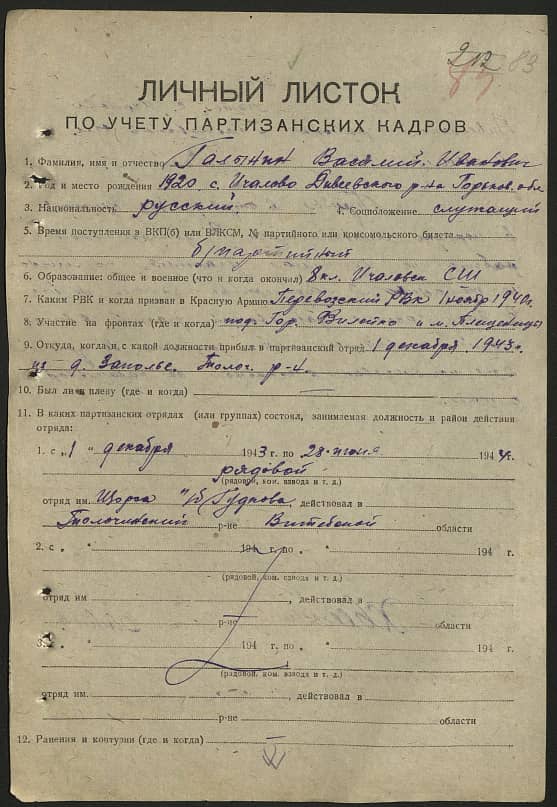 212 83
ЛИЧНЫЙ ЛИСТОК
ПО УЧЕТУ ПАРТИЗАНСКИХ КАДРОВ
1. Фамилия, имя и отчество Галынин Василий Иванович
2. Год и место рождения 1920 с. Ичалово Дивеевского р-на Горьков. обл
3. Национальность русский. 4. Соцположение служащий
5. Время поступления в ВКП(б) или ВЛКСМ, № партийного или комсомольского билета
б/партийный
6. Образование: общее и военное (что и когда окончил) 8 кл. Ичаловск СШ
7. Каким РВК и когда призван в Красную Армию Перевозский РВК 1 ноябр 1940г.
8. Участие на фронтах (где и когда) под гор. Вилейко и м. Плещеницы
9. Откуда, когда и с какой должности прибыл в партизанский отряд 1 декабря 1943г.
из д. Заполье. Толоч. р-н.
10. Был ли в плену (где и когда) —
11. В каких партизанских отрядах (или группах) состоял, занимаемая должность и район действия
отряда:
1. с „1" декабря 1943 г. по 28 июня 1944 г.
рядовой
(рядовой, ком. взвода и т. д.)
отряд им Щорса п/б Гудкова, действовал в
Толочинский р-не Витебской области
2. с „ " 194 г. по " 194 г.
(рядовой, ком. взвода и т. д.)
отряд им , действовал в
р-не области
3. " 194 г., по " 194 г.
(рядовой, ком. взвода и т. д.)
отряд им. , действовал в
р-не области
12. Ранения и контузии (где и когда) —